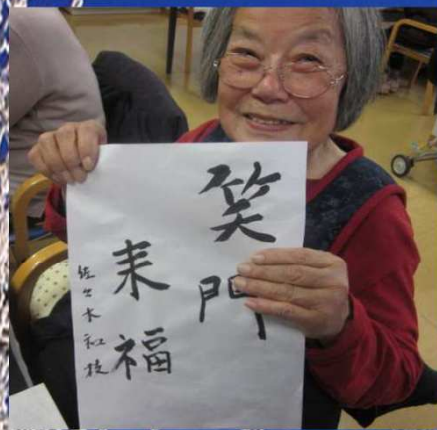 笑門
来福
佐々木和枝